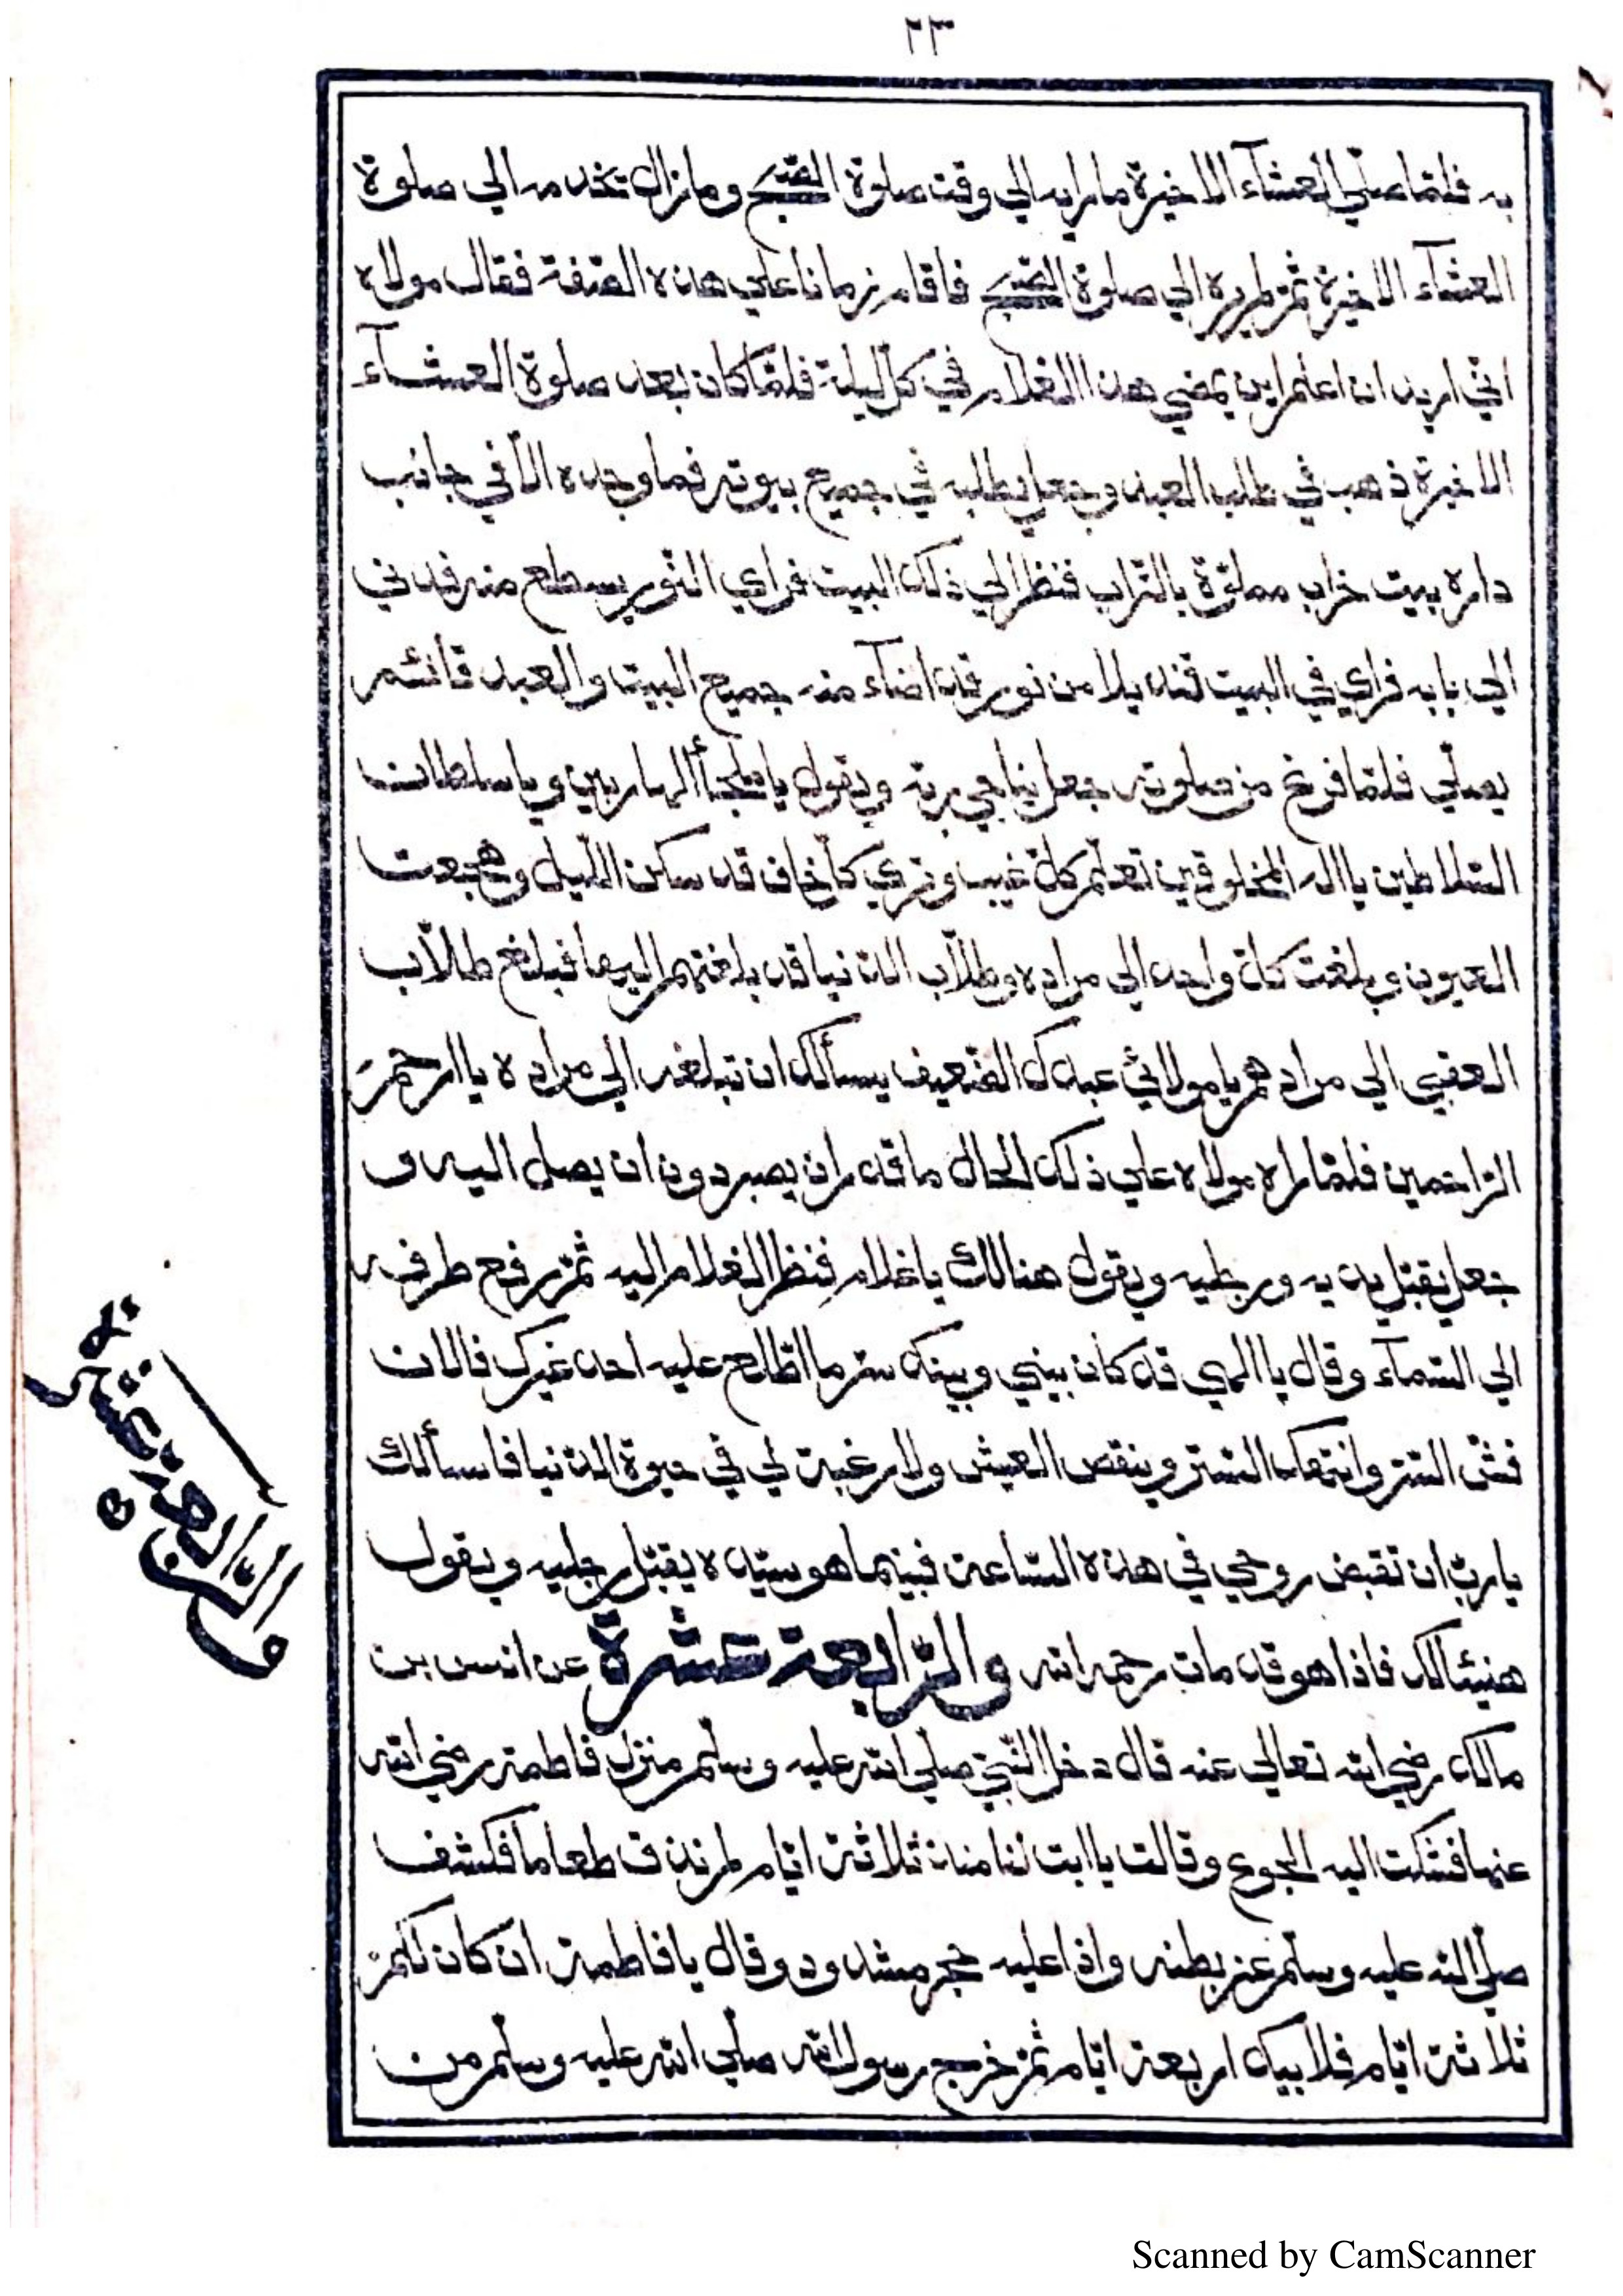 ٢٣
به فلمّا صلّي العشآء الاخيرة ما رايه الي وقت صلوة الصّبح وما زال تخدمه الي صلوة
العشآء الاخيرة ثمّ لم يره الي صلوة الصّبح فاقام زمانا علي هذه الصّفة فقال مولاه
انّي اريد ان اعلم اين يمضي هذا الغلام في كلّ ليلة فلمّا كان بعد صلوة العشآء
الاخيرة ذهب في طلب العبد وجعل يطلبه في جميع بيوته فما وجده الّا في جانب
داره ببيت خراب مملوّة بالتّراب فنظر الي ذلك البيت فراي النّور يسطع منه فدني
الي بابه فراي في البيت قنديلا من نور قد اضآء منه جميع البيت والعبد قائم
يصلّي فلمّا فرغ من صلوته جعل يناجي ربّه ويقول يا ملجأ الهاربين ويا سلطان
السّلاطين يا اله المخلوقين تعلم كلّ غيب وتري كلّ خاف قد سكن اللّيل وهجعت
العيون وبلغت كلّ واحد الي مراده وطلّاب الدّنيا قد بلغتهم اليها فبلغ طلّاب
العقبي الي مرادهم يا مولائي عبدك الضّعيف يسألك ان تبلغه الي مراده يا ارحم
الرّاحمين فلمّا راه مولاه علي ذلك الحال ما قدر ان يصبر دون ان يصل اليه و
جعل يقبّل يديه ورجليه ويقول هنالك يا غلام فنظر الغلام اليه ثمّ رفع طرفه
الي السّمآء وقال يا الهي قد كان بيني وبينك ستر ما اطّلع عليه احد غيرك فالان
فشّ السّتر وانتهك السّتر وينقص العيش ولا رغبة لي في حيوة الدّنيا فاسألك
يا ربّ ان تقبض روحي في هذه السّاعة فبينما هو سيّده يقبّل رجليه ويقول
هنيئا لك فاذا هو قد مات رحمه الله والرّابعة عشرة عن انس بن
مالك رضي الله تعالي عنه قال دخل النّبيّ صلي الله عليه وسلّم منزل فاطمة رضي الله
عنها فشكت اليه الجوع وقالت يا ابت لنا منذ ثلاثة ايّام لم نذق طعاما فكشف
صلّي الله عليه وسلّم عن بطنه واذا عليه حجر مشدود وقال يا فاطمة ان كان لكم
ثلاثة ايّام فلابيك اربعة ايّام ثمّ خرج رسول الله صلّي الله عليه وسلّم من
والرّابعة عشرة
Scanned by CamScanner